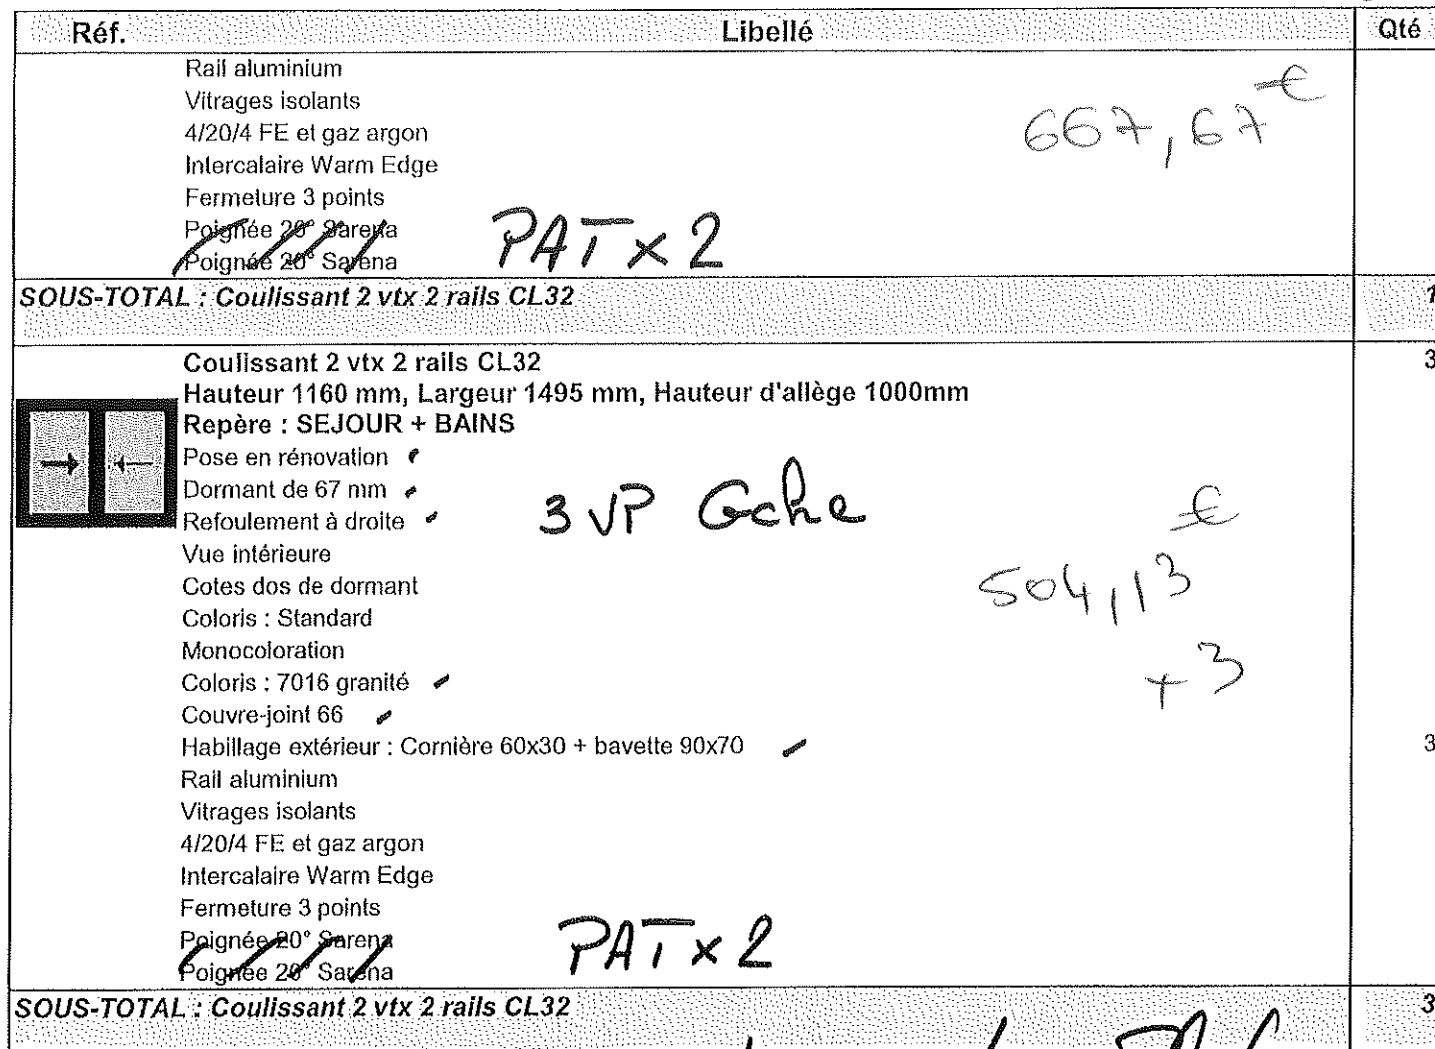 Réf. Libellé Qté
Rail aluminium
Vitrages isolants
4/20/4 FE et gaz argon
667,67 €
Intercalaire Warm Edge
Fermeture 3 points
Poignée 20° Sarena
Poignée 20° Sarena
PAT x 2
SOUS-TOTAL : Coulissant 2 vtx 2 rails CL32 1
Coulissant 2 vtx 2 rails CL32 3
Hauteur 1160 mm, Largeur 1495 mm, Hauteur d'allège 1000mm
Repère : SEJOUR + BAINS
Pose en rénovation
Dormant de 67 mm
3 VP Gche
Refoulement à droite
Vue intérieure
Cotes dos de dormant
504,13 €
Coloris : Standard
Monocoloration
+ 3
Coloris : 7016 granité
Couvre-joint 66
Habillage extérieur : Cornière 60x30 + bavette 90x70 3
Rail aluminium
Vitrages isolants
4/20/4 FE et gaz argon
Intercalaire Warm Edge
Fermeture 3 points
Poignée 20° Sarena
Poignée 20° Sarena
PAT x 2
SOUS-TOTAL : Coulissant 2 vtx 2 rails CL32 3